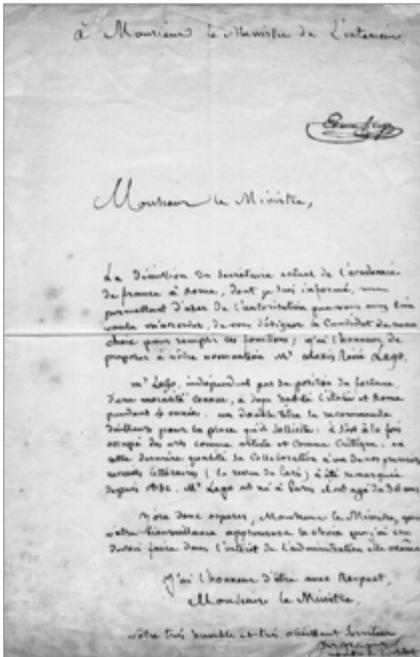 à Monsieur le Ministre de L'intérieur
Monsieur le Ministre,
La Démission du Secrétaire actuel de l'académie
de france à Rome, dont je suis informé, me
permettant d'user de l'autorisation que vous avez bien
voulu m'accorder, de vous désigner le Candidat de mon
choix pour remplir ces fonctions, j'ai l'honneur de
proposer à votre nomination Mr. alexis René Lego.
Mr. Lego, indépendant par sa position de fortune,
d'une moralité connue, a déjà habité l'italie et Rome
pendant 4 années. un double titre le recommande
d'ailleurs pour la place qu'il Sollicite: il s'est à la fois
occupé des arts comme artiste et Comme Critique; en
cette dernière qualité Sa Collaboration à un de nos premiers
recueils littéraires (la revue de Paris) a été remarquée
depuis Mr. Lego est né à Paris et est agé de 36 ans
J'ose donc espérer, Monsieur le Ministre, que
votre bienveillance approuvera le choix que j'ai cru
devoir faire dans l'intérêt de l'administration
J'ai l'honneur d'être avec Respect,
Monsieur le Ministre,
votre très humble et très obéissant Serviteur